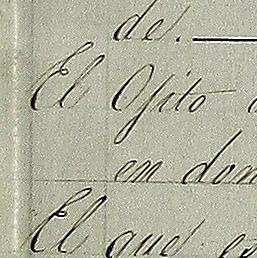 de. —
El Ojito
en don
El que